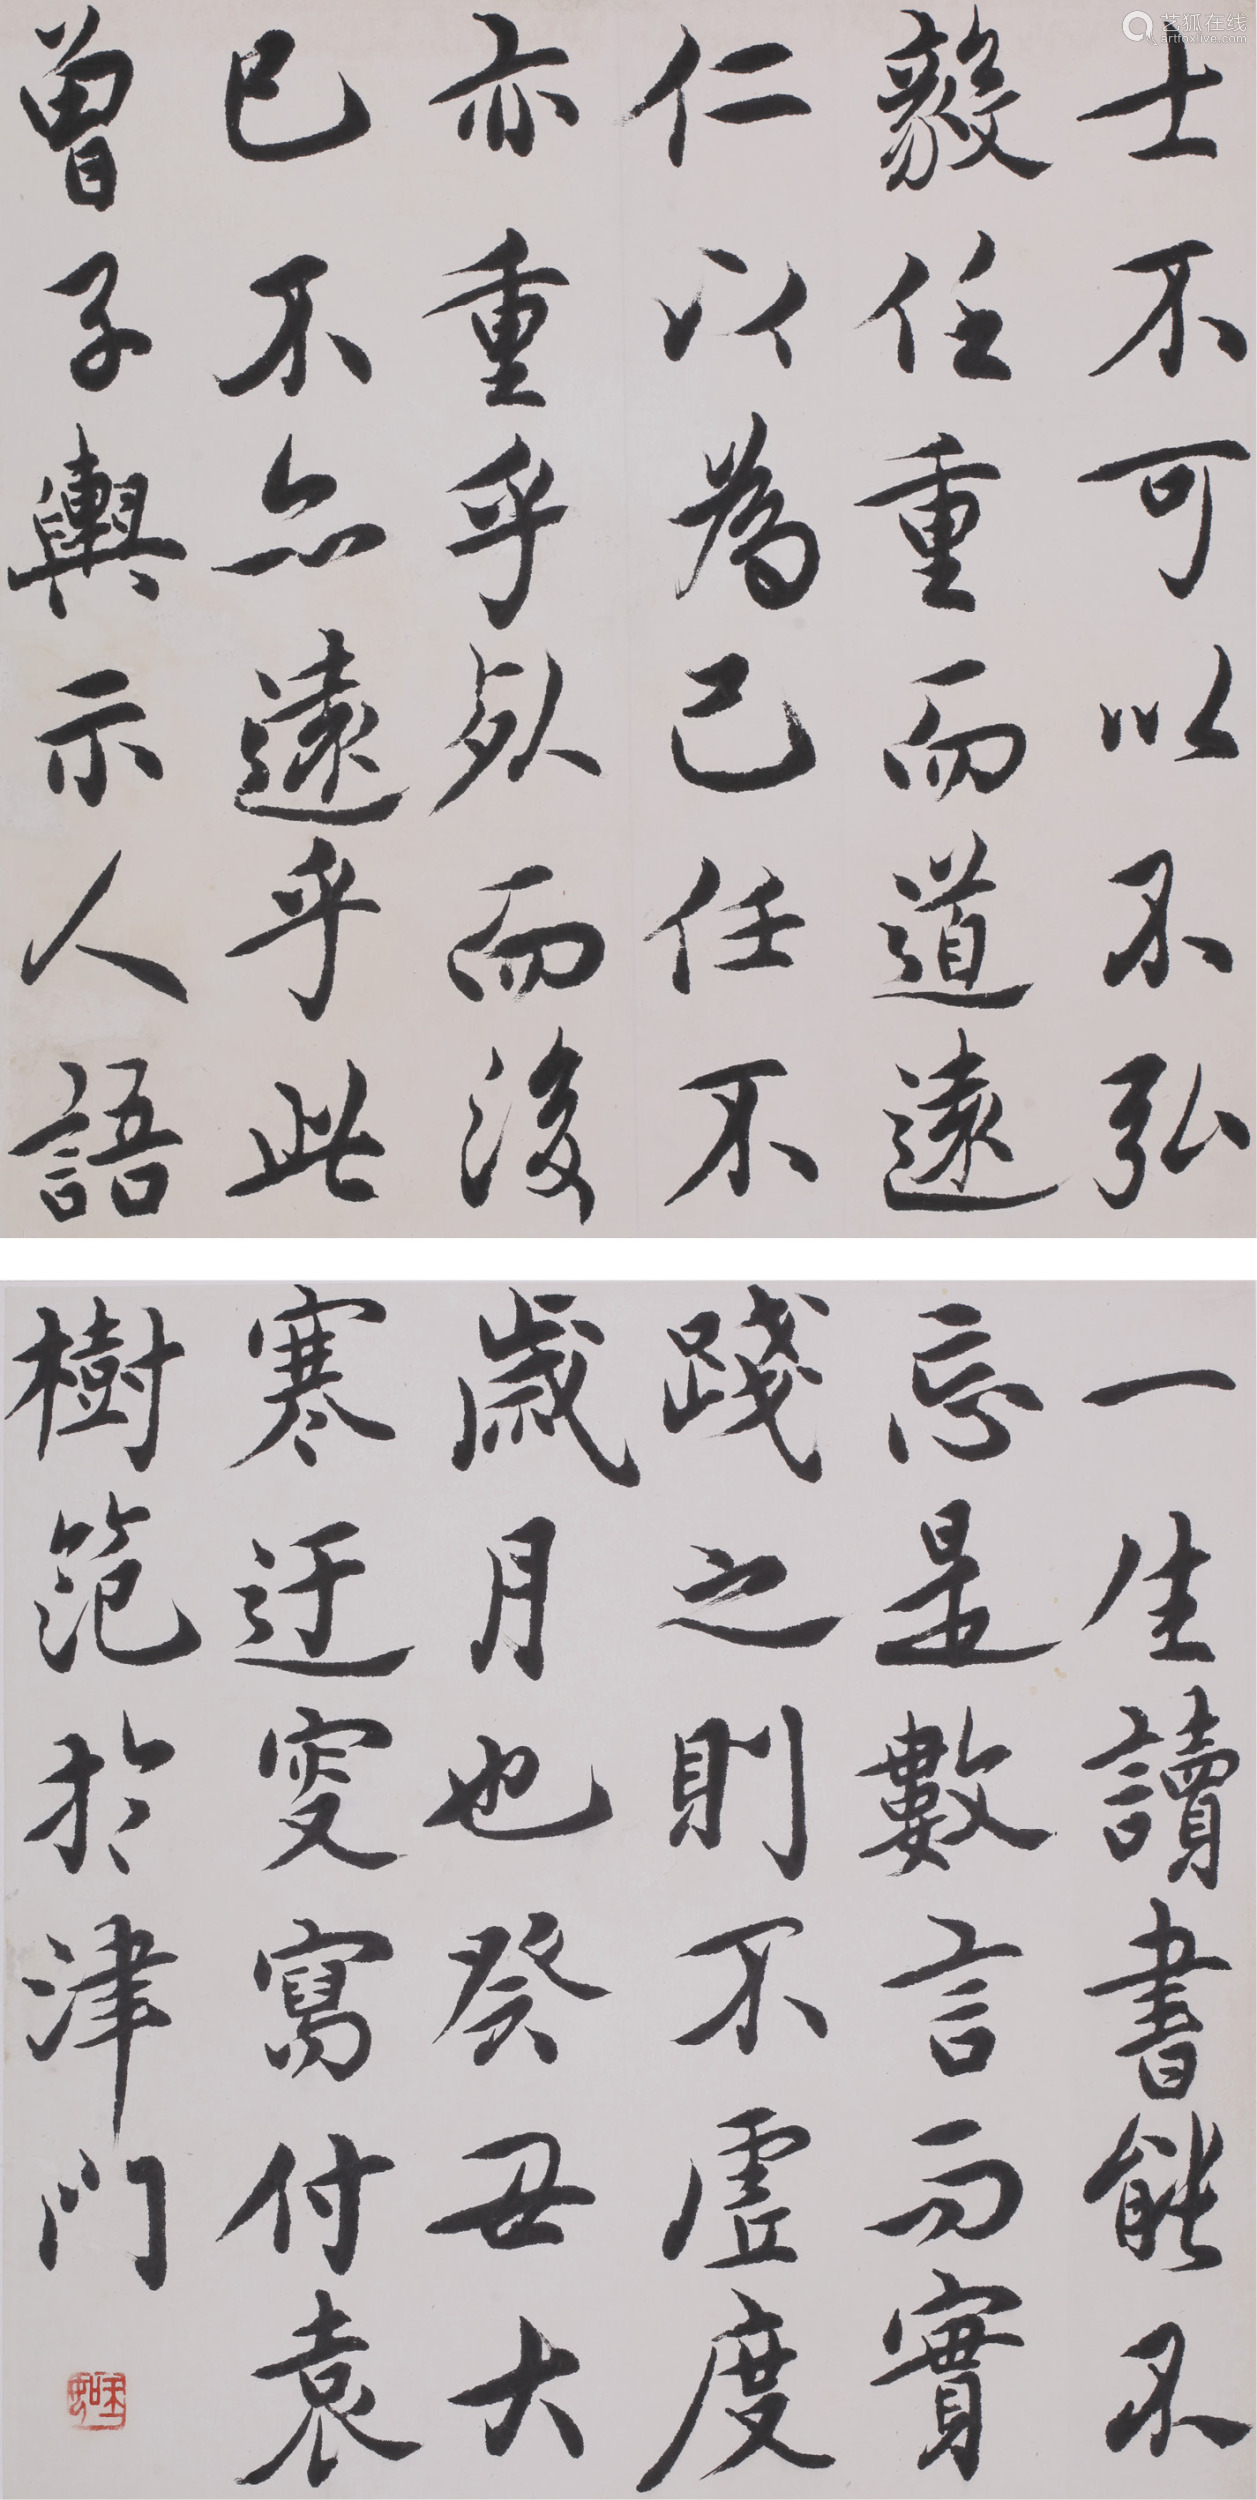 艺狐在线
artfoxlive.com
士不可以不弘
毅任重而道遠
仁以為己任不
亦重乎死而後
已不亦遠乎此
曾子輿示人語
一生讀書能不
忘是數言而實
踐之則不虛度
歲月也癸丑大
寒迂叟寫付袁
樹范於津門